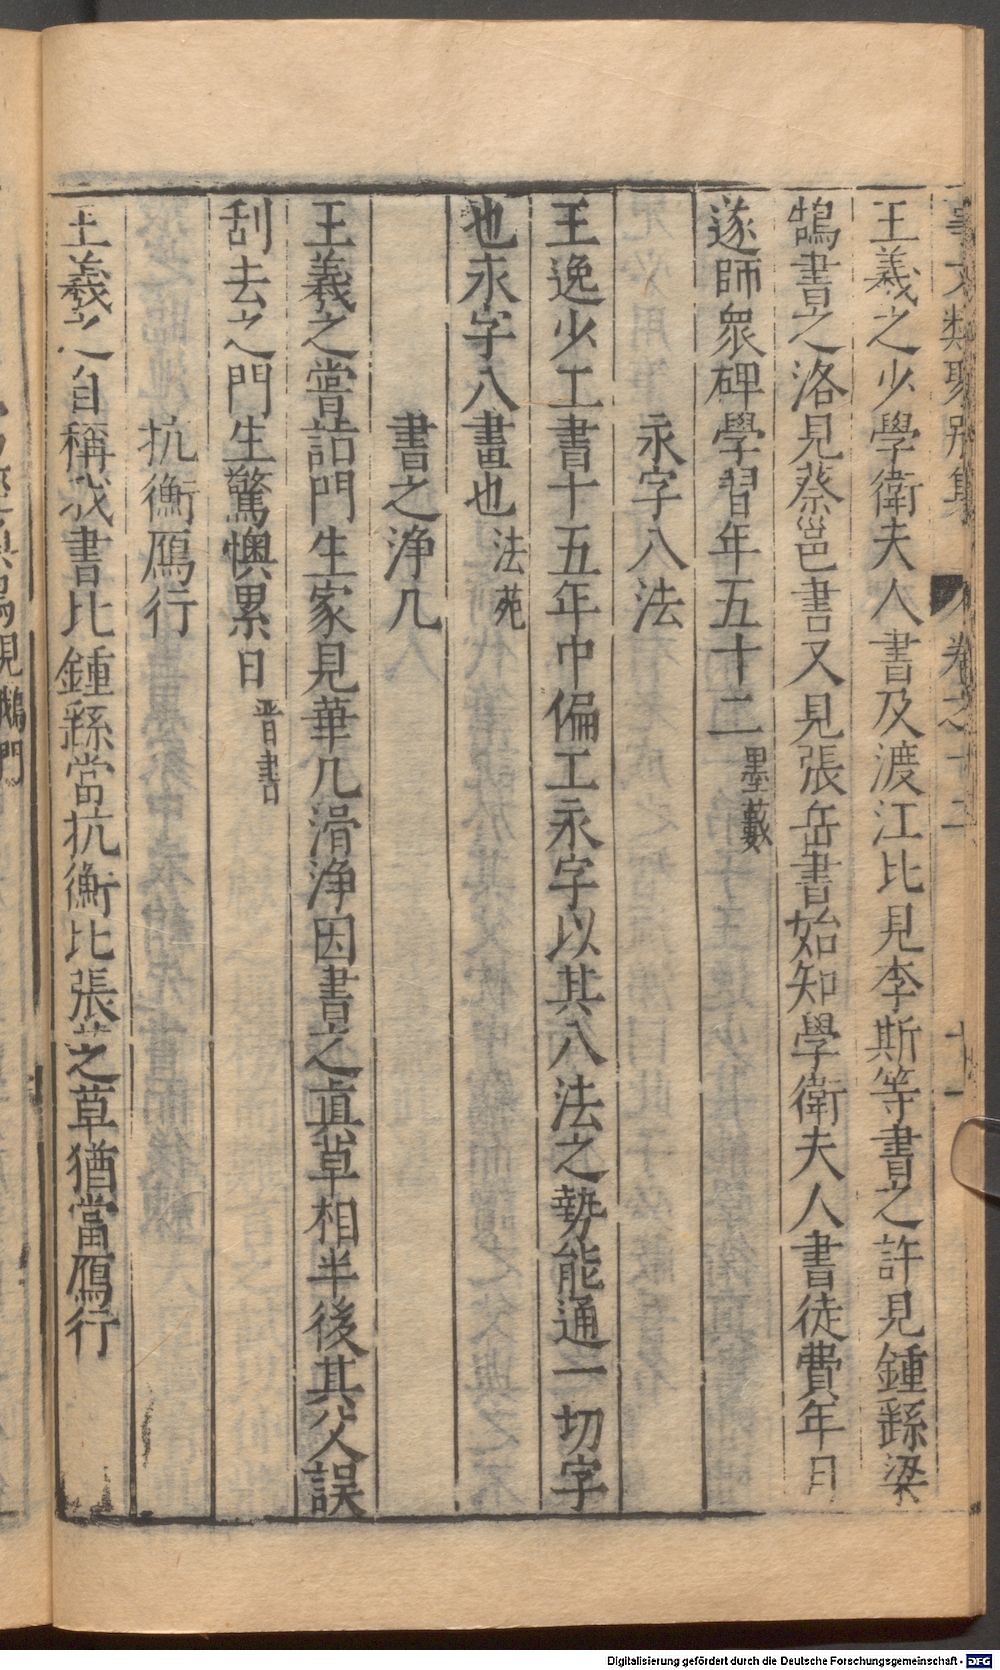 事文類聚別集 卷之十二 十一
王羲之少學衛夫人書及渡江比見李斯等書之許見鍾繇梁
鵠書之洛見蔡邕書又見張岳書始知學衛夫人書徒費年月
遂師衆碑學習年五十二墨藪
永字八法
王逸少工書十五年中偏工永字以其八法之勢能通一切字
也永字八畫也法苑
書之淨几
王羲之嘗詣門生家見華几滑淨因書之眞草相半後其父誤
刮去之門生驚懊累日晋書
抗衡鴈行
王羲之自稱我書比鍾繇當抗衡比張芝之草猶當鴈行
Digitalisierung gefördert durch die Deutsche Forschungsgemeinschaft - DFG